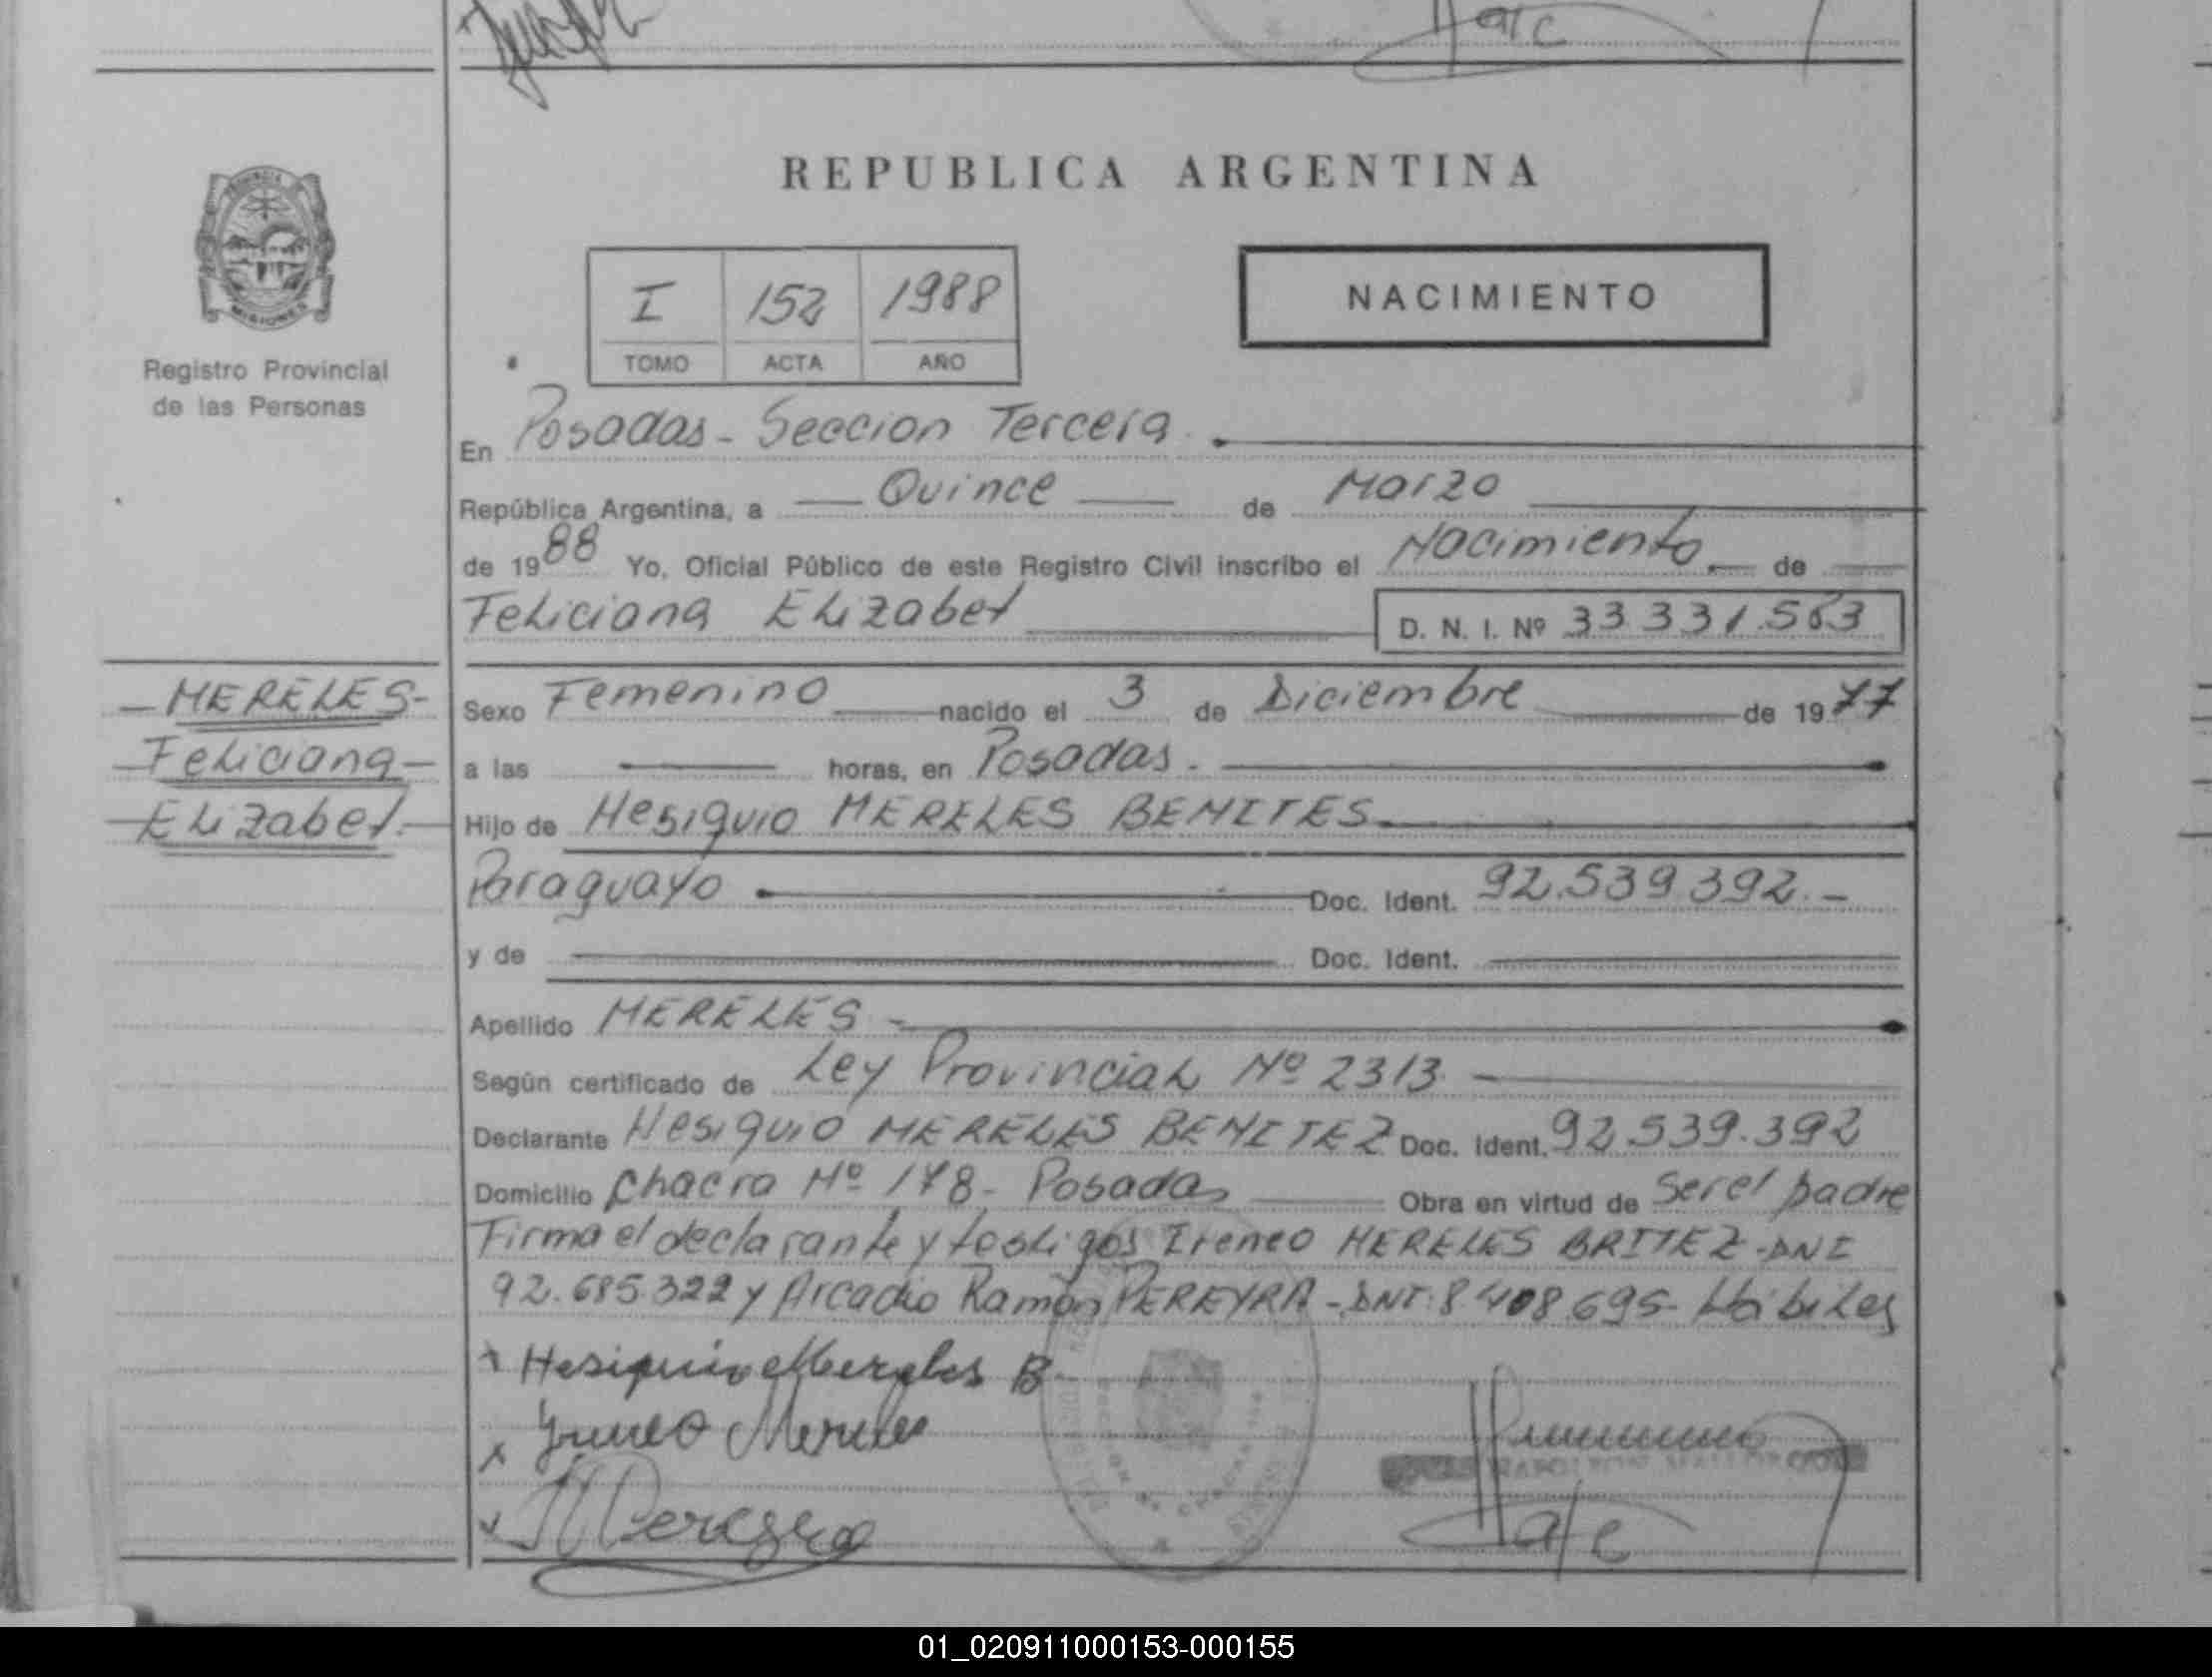 REPUBLICA ARGENTINA
PROVINCIA DE
MISIONES
Registro Provincial
de las Personas
I 152 1988
TOMO ACTA AÑO
NACIMIENTO
En Posadas - Seccion Tercera
República Argentina, a Quince de Marzo
de 1988 Yo, Oficial Público de este Registro Civil inscribo el Nacimiento de
Feliciana Elizabet D. N. I. Nº 33 331.563
- MERELES -
Feliciana
Elizabet.
Sexo Femenino nacido el 3 de Diciembre de 1977
a las horas, en Posadas.
Hijo de Hesiquio MERELES BENITES
Paraguayo Doc. Ident. 92.539 392. -
y de Doc. Ident.
Apellido MERELES -
Según certificado de Ley Provincial Nº 2313
Declarante Hesiquio MERELES BENITEZ Doc. Ident. 92.539.392
Domicilio Chacra Nº 178 - Posadas Obra en virtud de Ser el padre
Firma el declarante y testigos Ireneo MERELES BRITEZ - DNI
92.685.322 y Arcadio Ramón PEREYRA - DNI: 8 408.695 - Hábiles
x Hesiquio Mereles B
x Ireneo Mereles
01_020911000153-000155